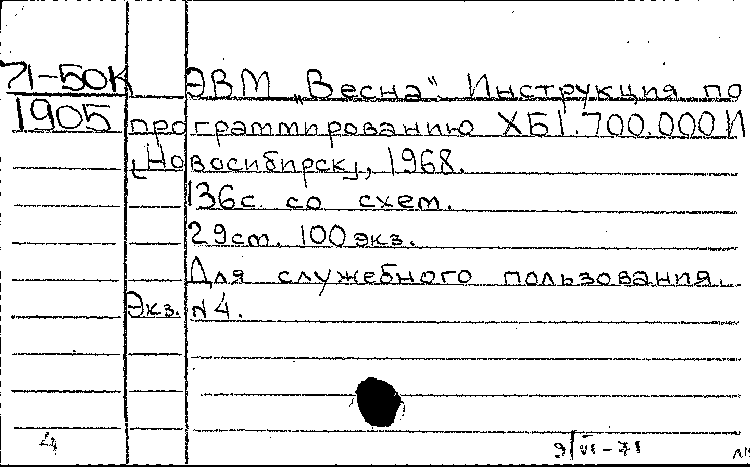 71-50К ЭВМ „Весна". Инструкция по
1905 программированию ХБ1.700.000И
[Новосибирск], 1968.
136с. со схем.
29см. 100 экз.
Для служебного пользования.
Экз. №4.
4
9/VI-71